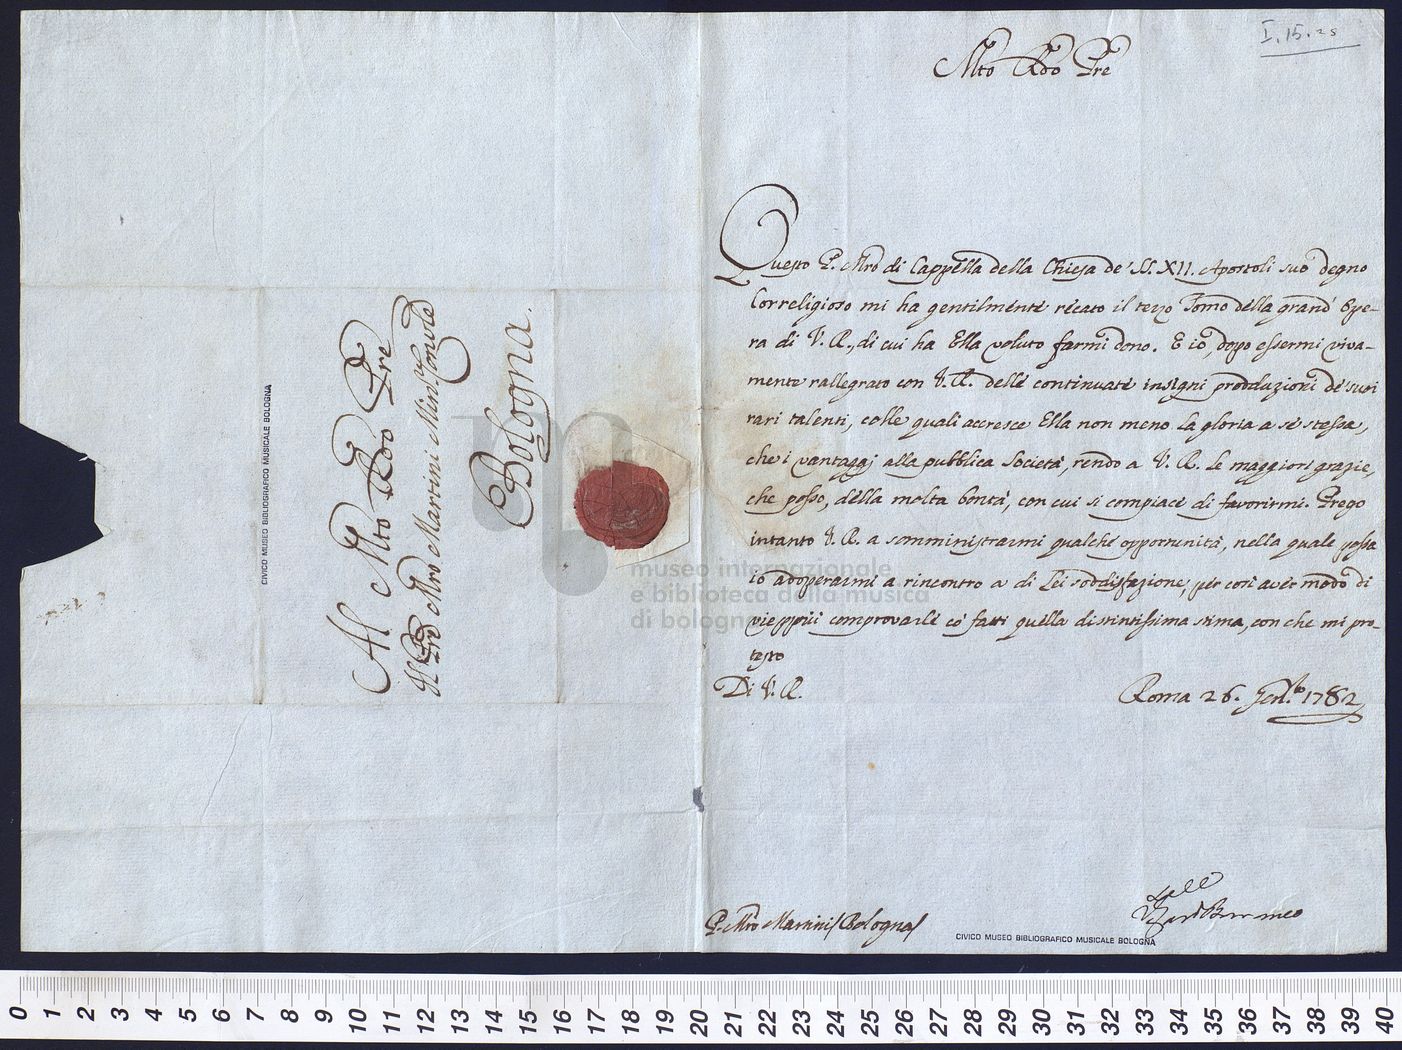 I. 15. 25
Mto Rdo Pre
Questo P. Mro di Cappella della Chiesa de' SS. XII. Apostoli suo degno
Correligioso mi ha gentilmente recato il terzo Tomo della grand' Ope-
ra di V. R., di cui ha Ella voluto farmi dono. E io, dopo essermi viva-
mente rallegrato con V. R. delle continuate insigni produzioni de' suoi
rari talenti, colle quali accresce Ella non meno la gloria a se stessa,
che i vantaggj alla pubblica Società, rendo a V. R. le maggiori grazie,
che posso, della molta bontà, con cui si compiace di favorirmi. Prego
intanto V. R. a somministrarmi qualche opportunità, nella quale possa
io adoperarmi a rincontro a di Lei soddisfazione, per così aver modo di
vieppiù comprovarle co' fatti quella distintissima stima, con che mi pro-
testo
Di V. R.
Roma 26. Genn.o 1782
P. Mro Martini (Bologna)
CIVICO MUSEO BIBLIOGRAFICO MUSICALE BOLOGNA
Al Mto Rdo Pre
Il Pre Mro Martini Min. Conv.le
Bologna.
CIVICO MUSEO BIBLIOGRAFICO MUSICALE BOLOGNA
museo internazionale
e biblioteca della musica
di bologna
0 1 2 3 4 5 6 7 8 9 10 11 12 13 14 15 16 17 18 19 20 21 22 23 24 25 26 27 28 29 30 31 32 33 34 35 36 37 38 39 40